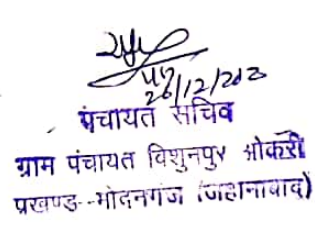 26/12/202
पंचायत सचिव
ग्राम पंचायत विशुनपुर ओकरी
प्रखण्ड--मोदनगंज (जहानाबाद)